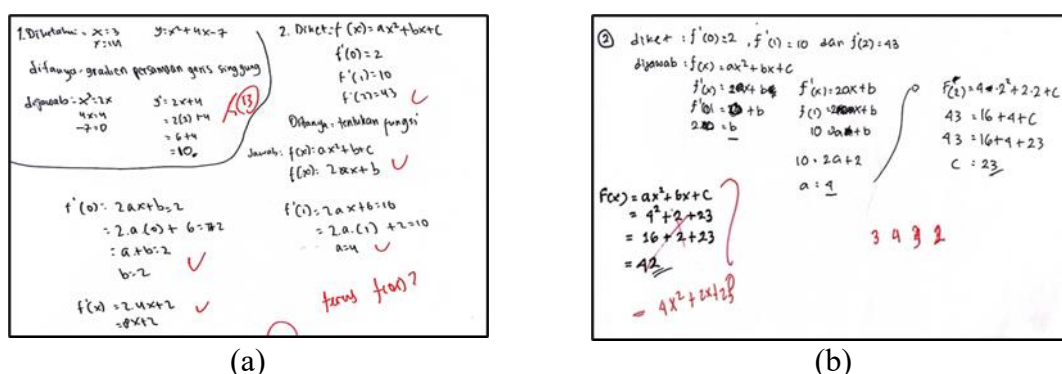 1. Diketahui = x = 3 y = x² + 4x - 7
ditanya = gradien persamaan garis singgung
dijawab = x² = 2x
4x = 4
-7 = 0
y' = 2x + 4
= 2(3) + 4
= 6 + 4
= 10
13
2. Diket = f(x) = ax² + bx + c
f'(0) = 2
f'(1) = 10
f'(2) = 43
Ditanya = tentukan fungsi
Jawab: f(x) = ax² + bx + c
f(x) = 2ax + b
f'(0) = 2ax + b = 2
= 2.a.(0) + b = 2
= a + b = 2
b = 2
f'(1) = 2ax + b = 10
= 2.a.(1) + 2 = 10
a = 4
f'(x) = 2.4x + 2
= 8x + 2
terus f(x)?
(a)
② diket : f'(0) = 2 , f'(1) = 10 dan f(2) = 43
dijawab : f(x) = ax² + bx + c
f'(x) = 2ax + b
f'(0) = + b
2 = b
f'(x) = 2ax + b
f(1) = + b
10 = + b
10 = 2a + 2
a = 4
F(2) = 4 · 2² + 2 · 2 + C
43 = 16 + 4 + C
43 = 16 + 4 + 23
C = 23
F(x) = ax² + bx + C
= 4² + 2 + 23
= 16 + 2 + 23
= 42
= 4x² + 2x + 23
3 4 3 2
(b)